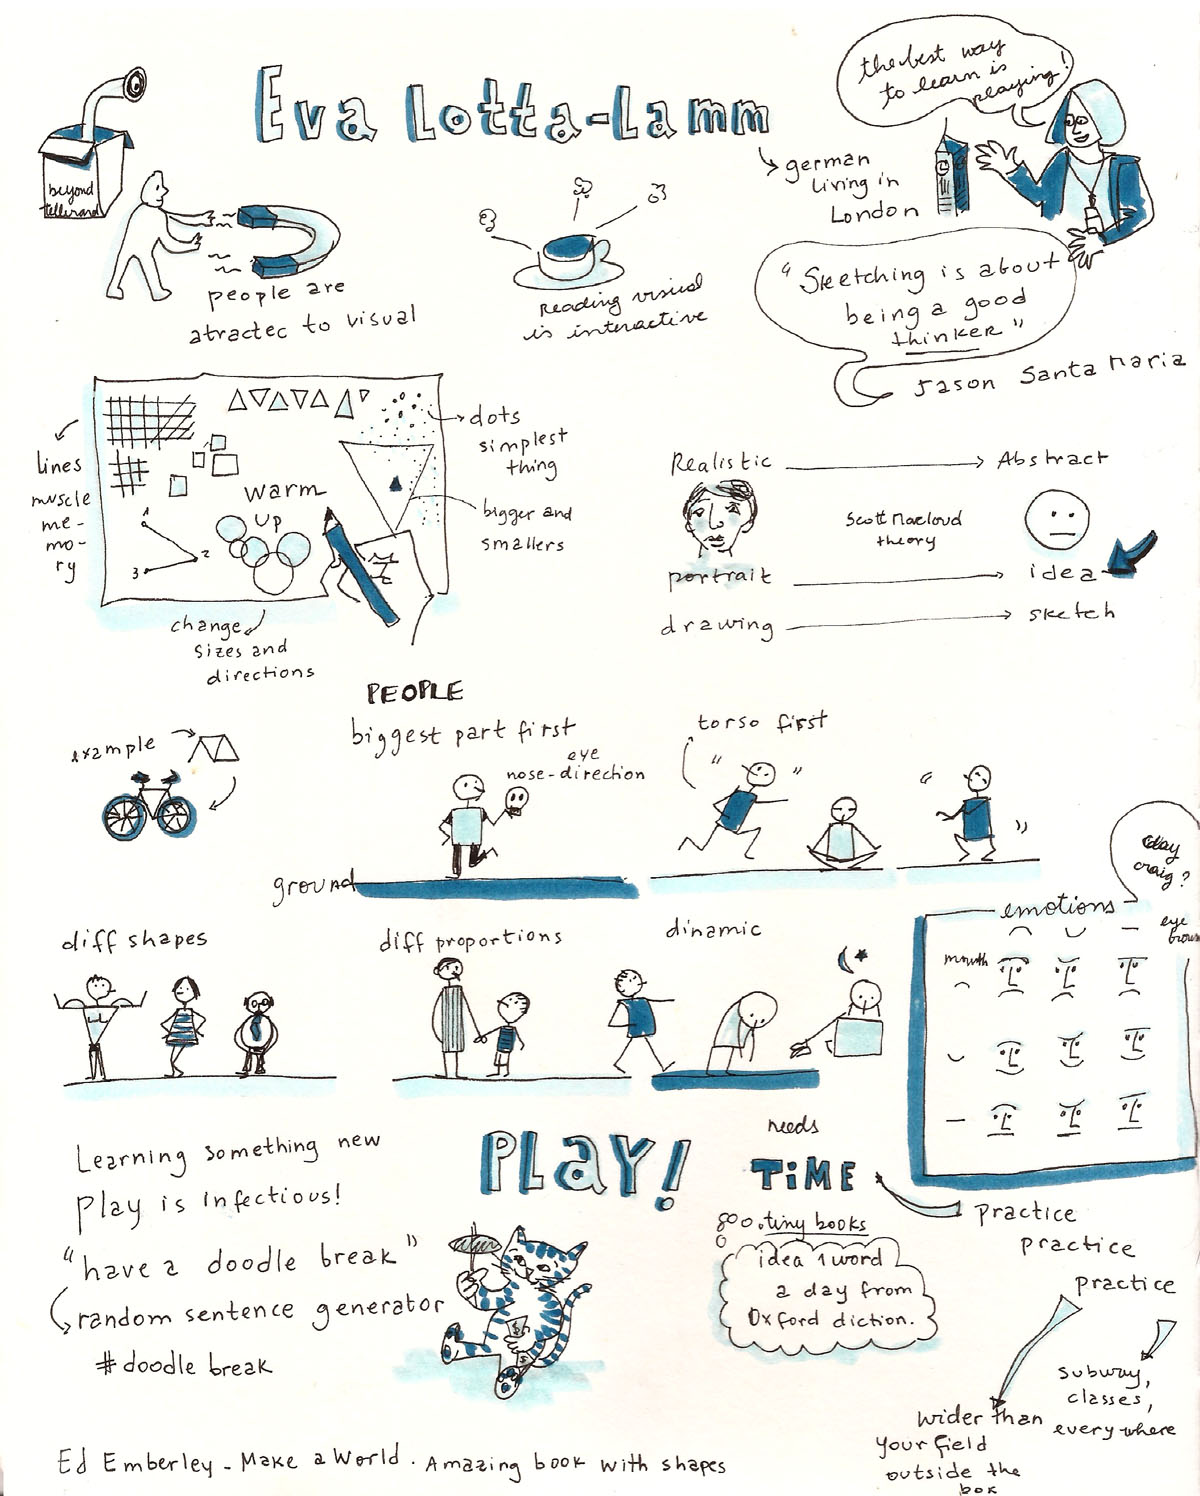 Eva Lotta-Lamm
the best way
to learn is
playing!
german
living in
London
beyond
tellerand
people are
atractec to visual
reading visual
is interactive
"Sketching is about
being a good
thinker"
Jason Santa Maria
lines
muscle
me-
mo-
ry
warm
up
1
2
3
dots
simplest
thing
bigger and
smallers
change
sizes and
directions
Realistic
Abstract
Scott Macloud
theory
portrait
idea
drawing
sketch
PEOPLE
biggest part first
eye
nose-direction
example
ground
torso first
craig?
emotions
eye
brows
mouth
diff shapes
diff proportions
dinamic
Learning something new
Play is infectious!
"have a doodle break"
random sentence generator
#doodle break
PLAY!
needs
TiME
practice
practice
practice
800. tiny books
idea 1 word
a day from
Oxford diction.
subway,
classes,
everywhere
wider than
your field
outside the
box
Ed Emberley - Make a World. Amazing book with shapes